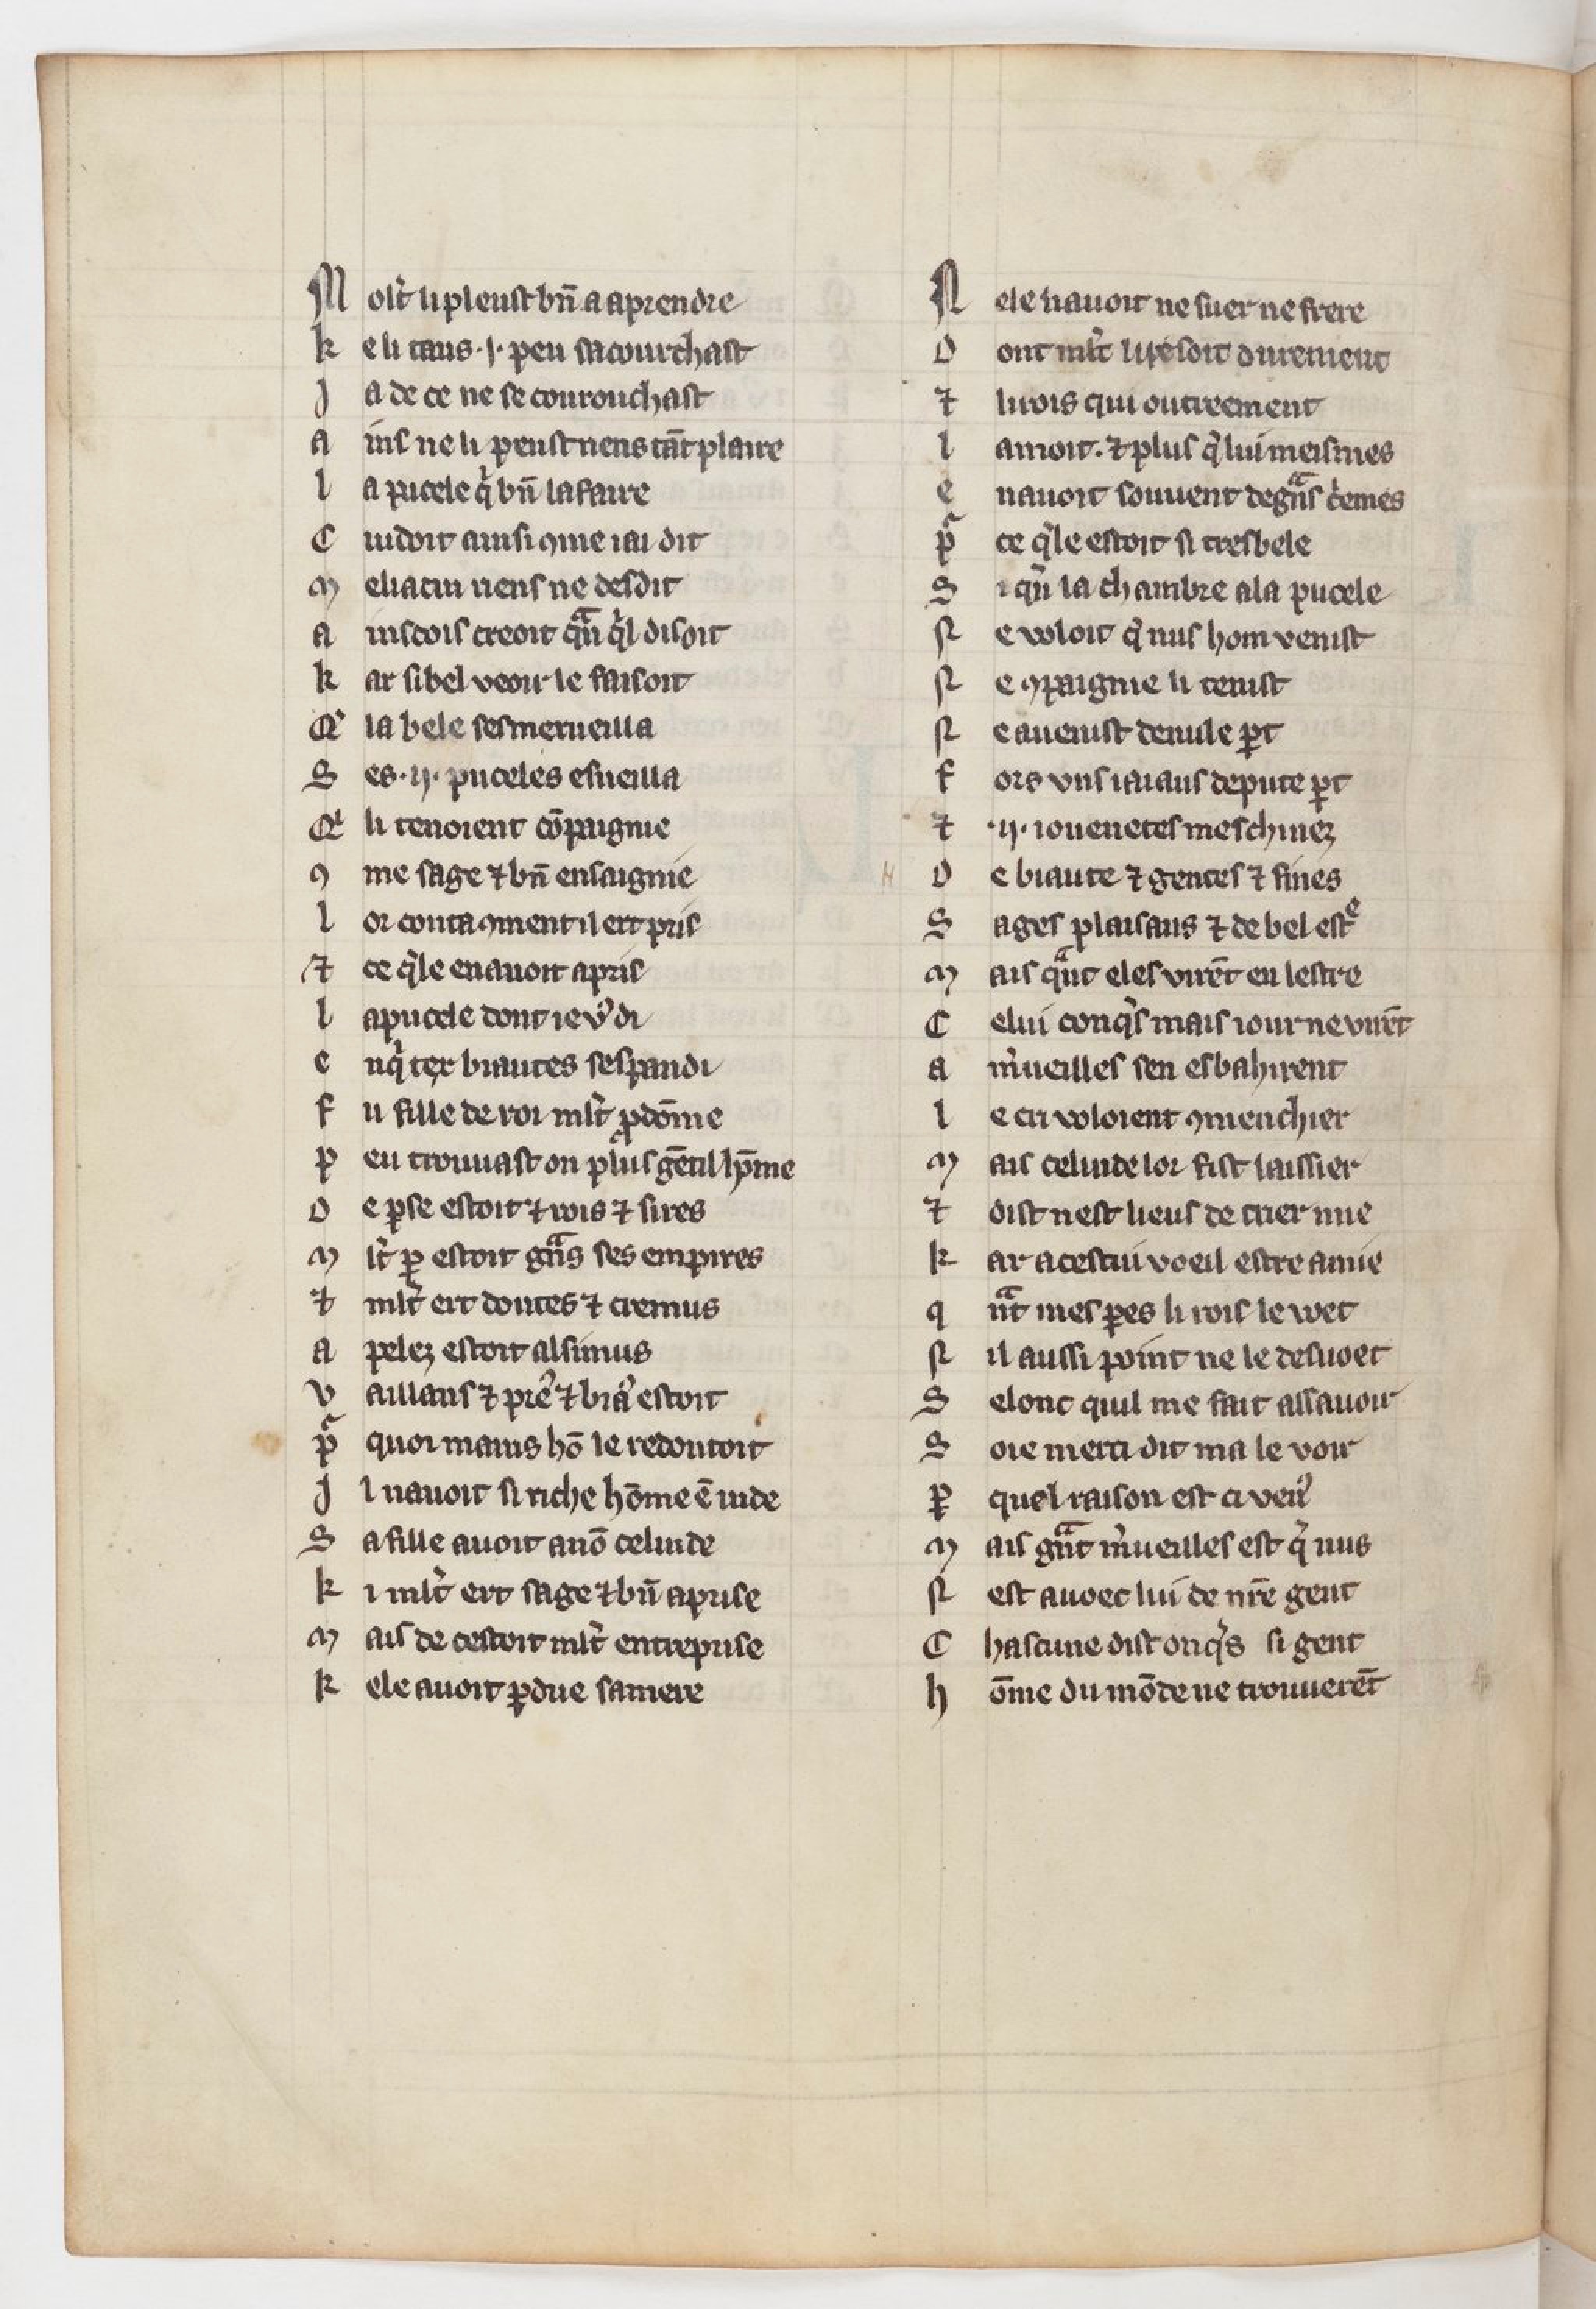 M olt̛ li pleust bn̄ a aprendre
k e li tans .i. peu sacourchast
J a de ce ne se courouchast
a ins ne li peust riens tāt plaire
l a pucele q̛ bn̄ lafaire
C uidoit ainsi ꝯme iai dit
M eliacin riens ne desdit
a inscois creoit qᵃn̄ q̛l disoit
k ar si bel veoir le faisoit
Qͥ la bele sesmerueilla
S es .ij. puceles esueilla
Qͥ li tenoient cōpaignie
ꝯ me sage ⁊ bn̄ ensaignie
l or conta ꝯment il ert pris
⁊ ce q̛le en auoit apris
l a pucele dont ie v̛di
e n q̛ ter biautes sespandi
f u fille de roi ml̛t ꝓdōme
p eu trouuast on plus gētil hōme
D e ꝑse estoit ⁊ rois ⁊ sires
M l̛t ꝑ estoit gᵃns ses empires
⁊ ml̛t ert doutes ⁊ cremus
a pelez estoit alfimus
V aillans ⁊ preꝰ ⁊ biaꝰ estoit
p̛ quoi mains hō le redoutoit
J l nauoit si riche hōme ē inde
S a fille auoit a nō celinde
k i ml̛t ert sage ⁊ bn̄ aprise
M ais de cestoit ml̛t entreprise
k ele auoit ꝑdue sa mere
N ele nauoit ne suer ne frere
D ont ml̛t li pesoit durement
⁊ li rois qui outreement
l amoit . ⁊ plus q̛ lui meismes
e n auoit souuent de gᵃns c̛emes
p̛ ce q̛le estoit si tres bele
S i qn̄ la chambre a la pucele
N e voloit q̛ nus hom venist
N e ꝯpaignie li tenist
N e auenist de nule ꝑt
F ors vns iaians de pute ꝑt
⁊ .ij. iouenetes meschinez
D e biaute ⁊ gentes ⁊ fines
S ages plaisans ⁊ de bel estᵉ
M ais qᵃnt eles virēt en lestre
C elui conq̛s mais iour ne virēt
a m̛ueilles sen esbahirent
l e cri voloient ꝯmenchier
M ais celinde lor fist laissier
⁊ dist nest lieus de crier mie
k ar a cestui voeil estre amie
q ᵃnt mes ꝑes li rois le wet
N il aussi point ne le desuoet
S elonc quil me fait assauoir
S oie merci dit ma le voir
P̱ quel raison est ci venꝰ
M ais gᵃnt m̛ueilles est q̛ nus
N est auoec lui de nr̄e gent
C hascune dist onq̛s si gent
h ōme du mōde ne trouuerēt